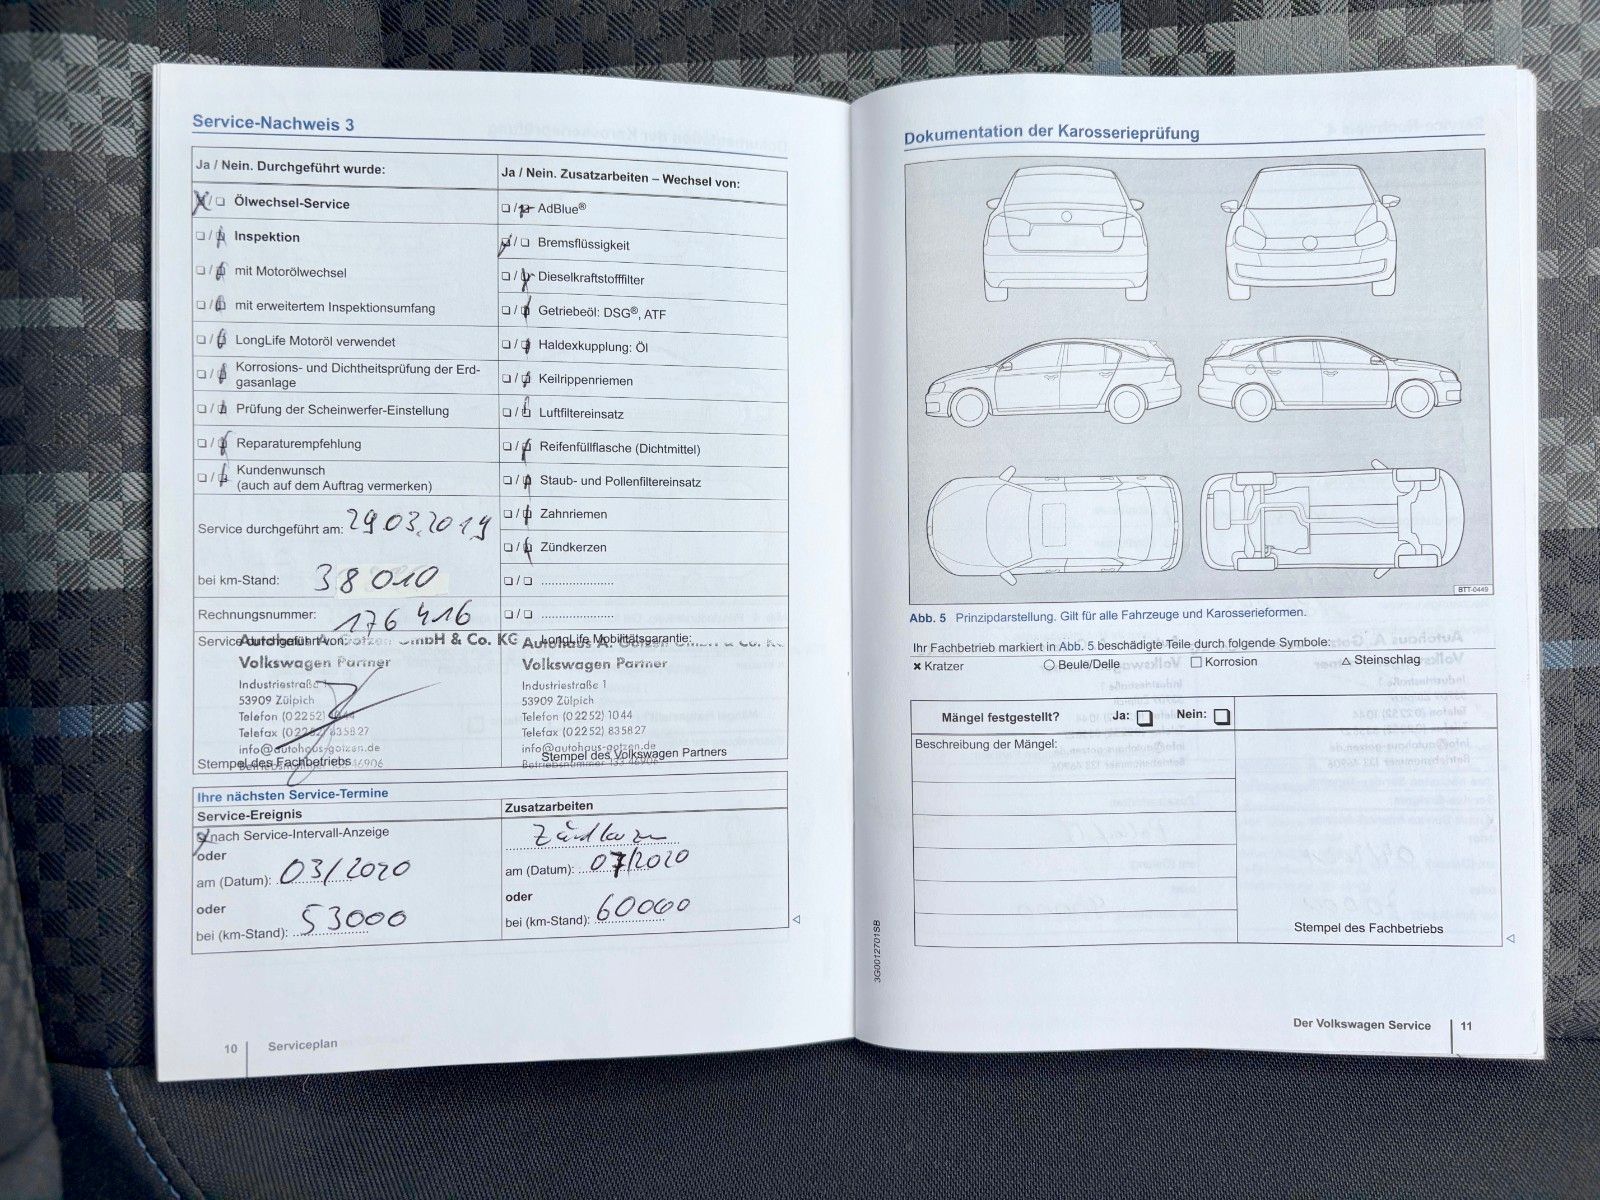 Service-Nachweis 3
Ja / Nein. Durchgeführt wurde:
Ölwechsel-Service
Inspektion
mit Motorölwechsel
mit erweitertem Inspektionsumfang
LongLife Motoröl verwendet
Korrosions- und Dichtheitsprüfung der Erd-
gasanlage
Prüfung der Scheinwerfer-Einstellung
Reparaturempfehlung
Kundenwunsch
(auch auf dem Auftrag vermerken)
Service durchgeführt am: 29.03.2019
bei km-Stand: 38010
Rechnungsnummer: 176 416
Service durchgeführt von:
GmbH & Co. KG
Volkswagen Partner
Industriestraße 1
53909 Zülpich
Telefon (0 22 52) 10 44
Telefax (0 22 52) 83 58 27
info@autohaus-gotzen.de
Stempel des Fachbetriebs
Ja / Nein. Zusatzarbeiten – Wechsel von:
AdBlue®
Bremsflüssigkeit
Dieselkraftstofffilter
Getriebeöl: DSG®, ATF
Haldexkupplung: Öl
Keilrippenriemen
Luftfiltereinsatz
Reifenfüllflasche (Dichtmittel)
Staub- und Pollenfiltereinsatz
Zahnriemen
Zündkerzen
LongLife Mobilitätsgarantie:
Autohaus A. Gotzen GmbH & Co. KG
Volkswagen Partner
Industriestraße 1
53909 Zülpich
Telefon (0 22 52) 10 44
Telefax (0 22 52) 83 58 27
info@autohaus-gotzen.de
Stempel des Volkswagen Partners
Betriebsnummer 133 46906
Ihre nächsten Service-Termine
Service-Ereignis
nach Service-Intervall-Anzeige
oder
am (Datum): 03/2020
oder
bei (km-Stand): 53000
Zusatzarbeiten
am (Datum): 07/2020
oder
bei (km-Stand): 60000
10 Serviceplan
Dokumentation der Karosserieprüfung
BTT-0449
Abb. 5 Prinzipdarstellung. Gilt für alle Fahrzeuge und Karosserieformen.
Ihr Fachbetrieb markiert in Abb. 5 beschädigte Teile durch folgende Symbole:
Kratzer Beule/Delle Korrosion Steinschlag
Mängel festgestellt? Ja: Nein:
Beschreibung der Mängel:
Stempel des Fachbetriebs
3G0012701SB
Der Volkswagen Service 11